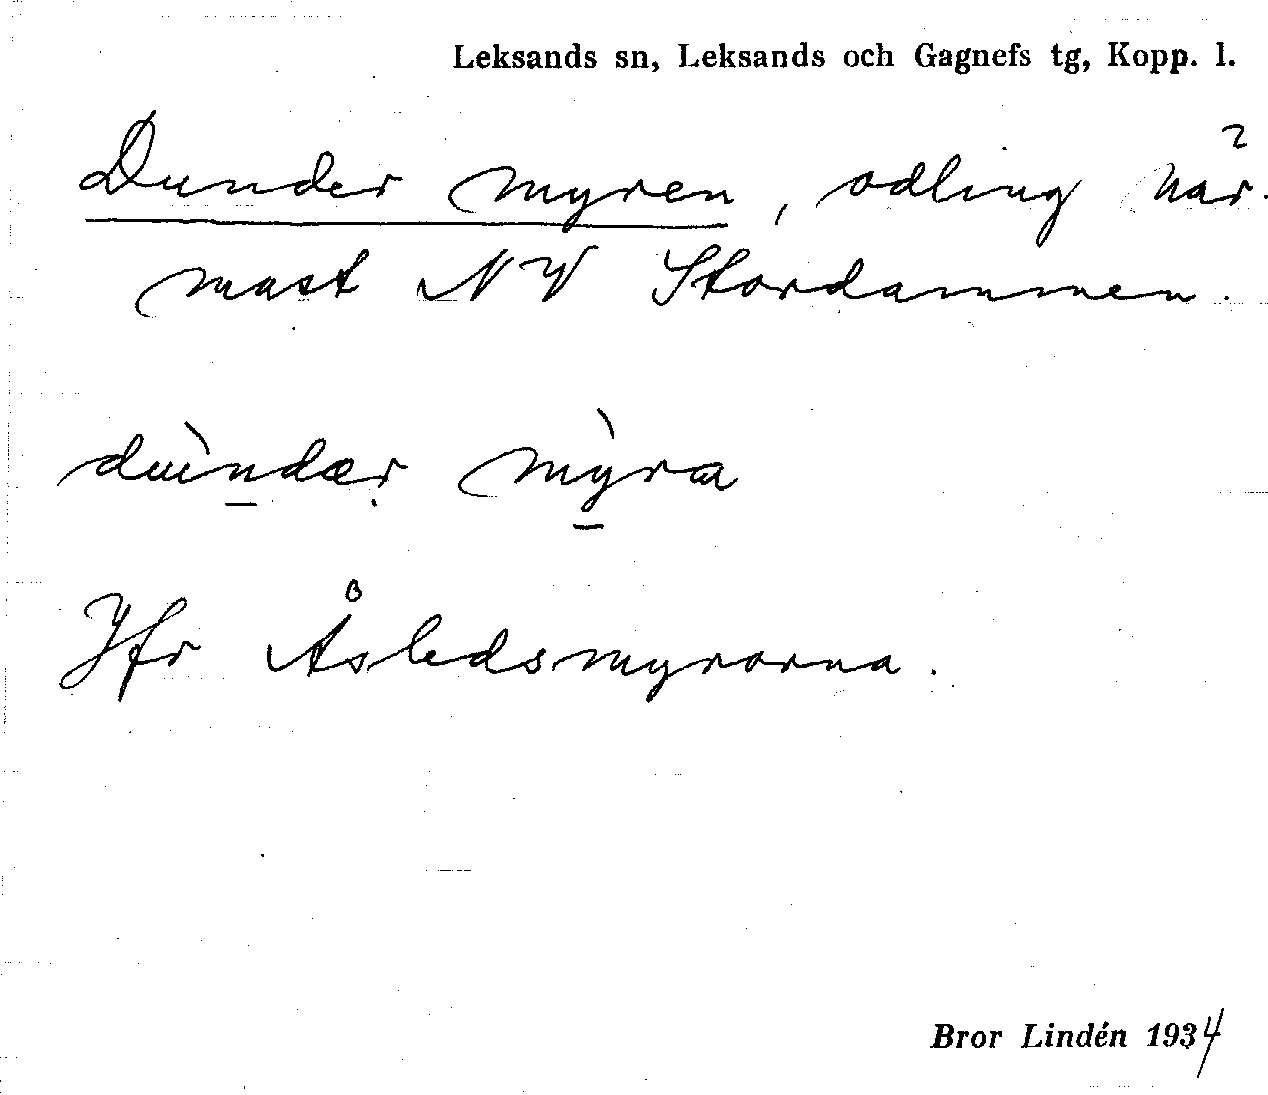 Leksands sn, Leksands och Gagnefs tg, Kopp. l.
Dunder myren, odling när-
mast NV Stordammen.
dùndær mỳra
Jfr Åsledsmyrorna.
Bror Lindén 1934